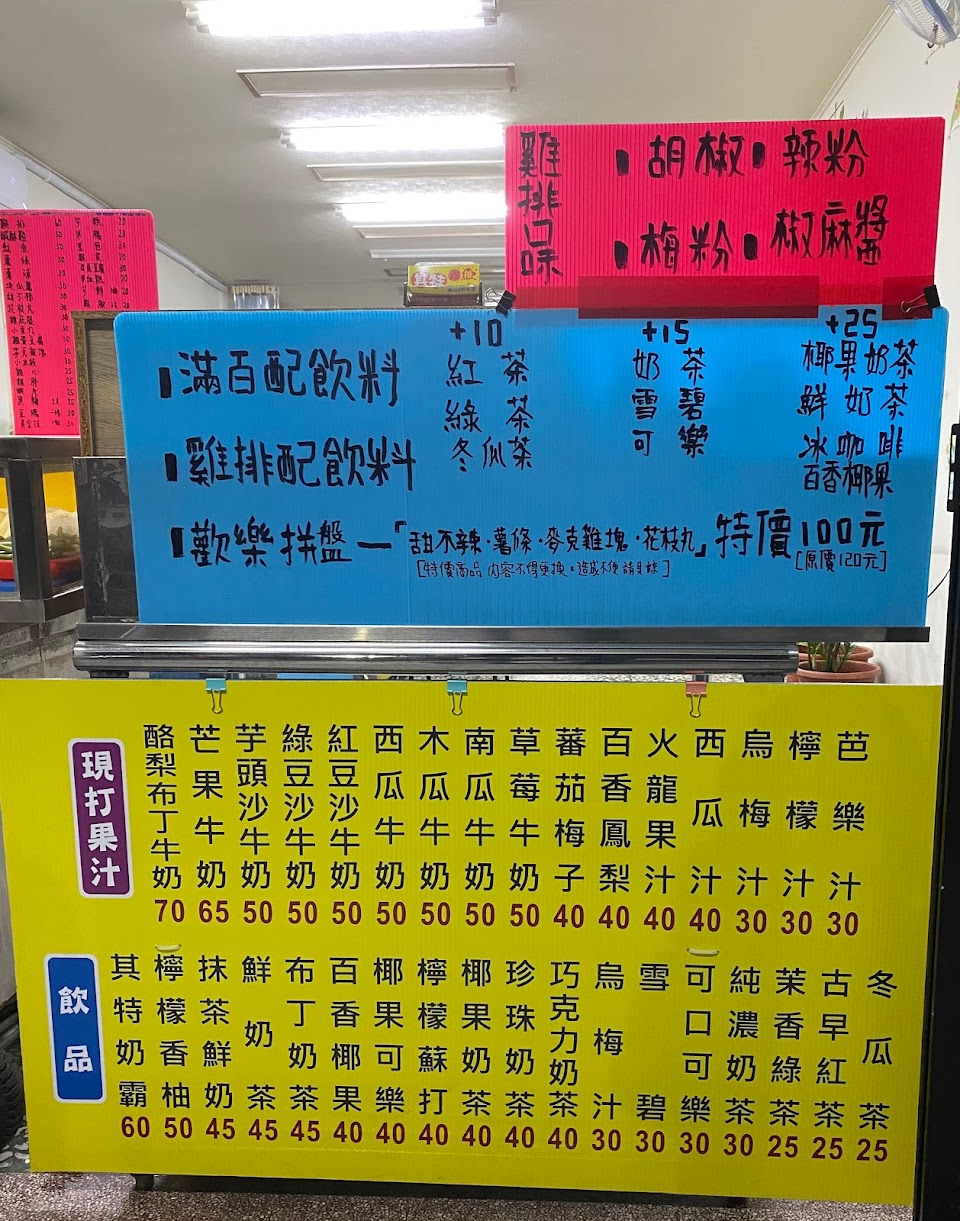 雞排口味
▮胡椒▮辣粉
▮梅粉▮椒麻醬
▮滿百配飲料
▮雞排配飲料
+10
紅茶
綠茶
冬瓜茶
+15
奶茶
雪碧
可樂
+25
椰果奶茶
鮮奶茶
冰咖啡
百香椰果
▮歡樂拼盤—「甜不辣·薯條·麥克雞塊·花枝丸」特價100元
[特價商品 內容不得更換。造成不便請見諒]
[原價120元]
現打果汁
酪梨布丁牛奶 70
芒果牛奶 65
芋頭沙牛奶 50
綠豆沙牛奶 50
紅豆沙牛奶 50
西瓜牛奶 50
木瓜牛奶 50
南瓜牛奶 50
草莓牛奶 50
蕃茄梅子 40
百香鳳梨 40
火龍果汁 40
西瓜汁 40
烏梅汁 30
檸檬汁 30
芭樂汁 30
飲品
其特奶霸 60
檸檬香柚 50
抹茶鮮奶 45
鮮奶茶 45
布丁奶茶 45
百香椰果 40
椰果可樂 40
檸檬蘇打 40
椰果奶茶 40
珍珠奶茶 40
巧克力奶茶 40
烏梅汁 30
雪碧 30
可口可樂 30
純濃奶茶 30
茉香綠茶 25
古早紅茶 25
冬瓜茶 25